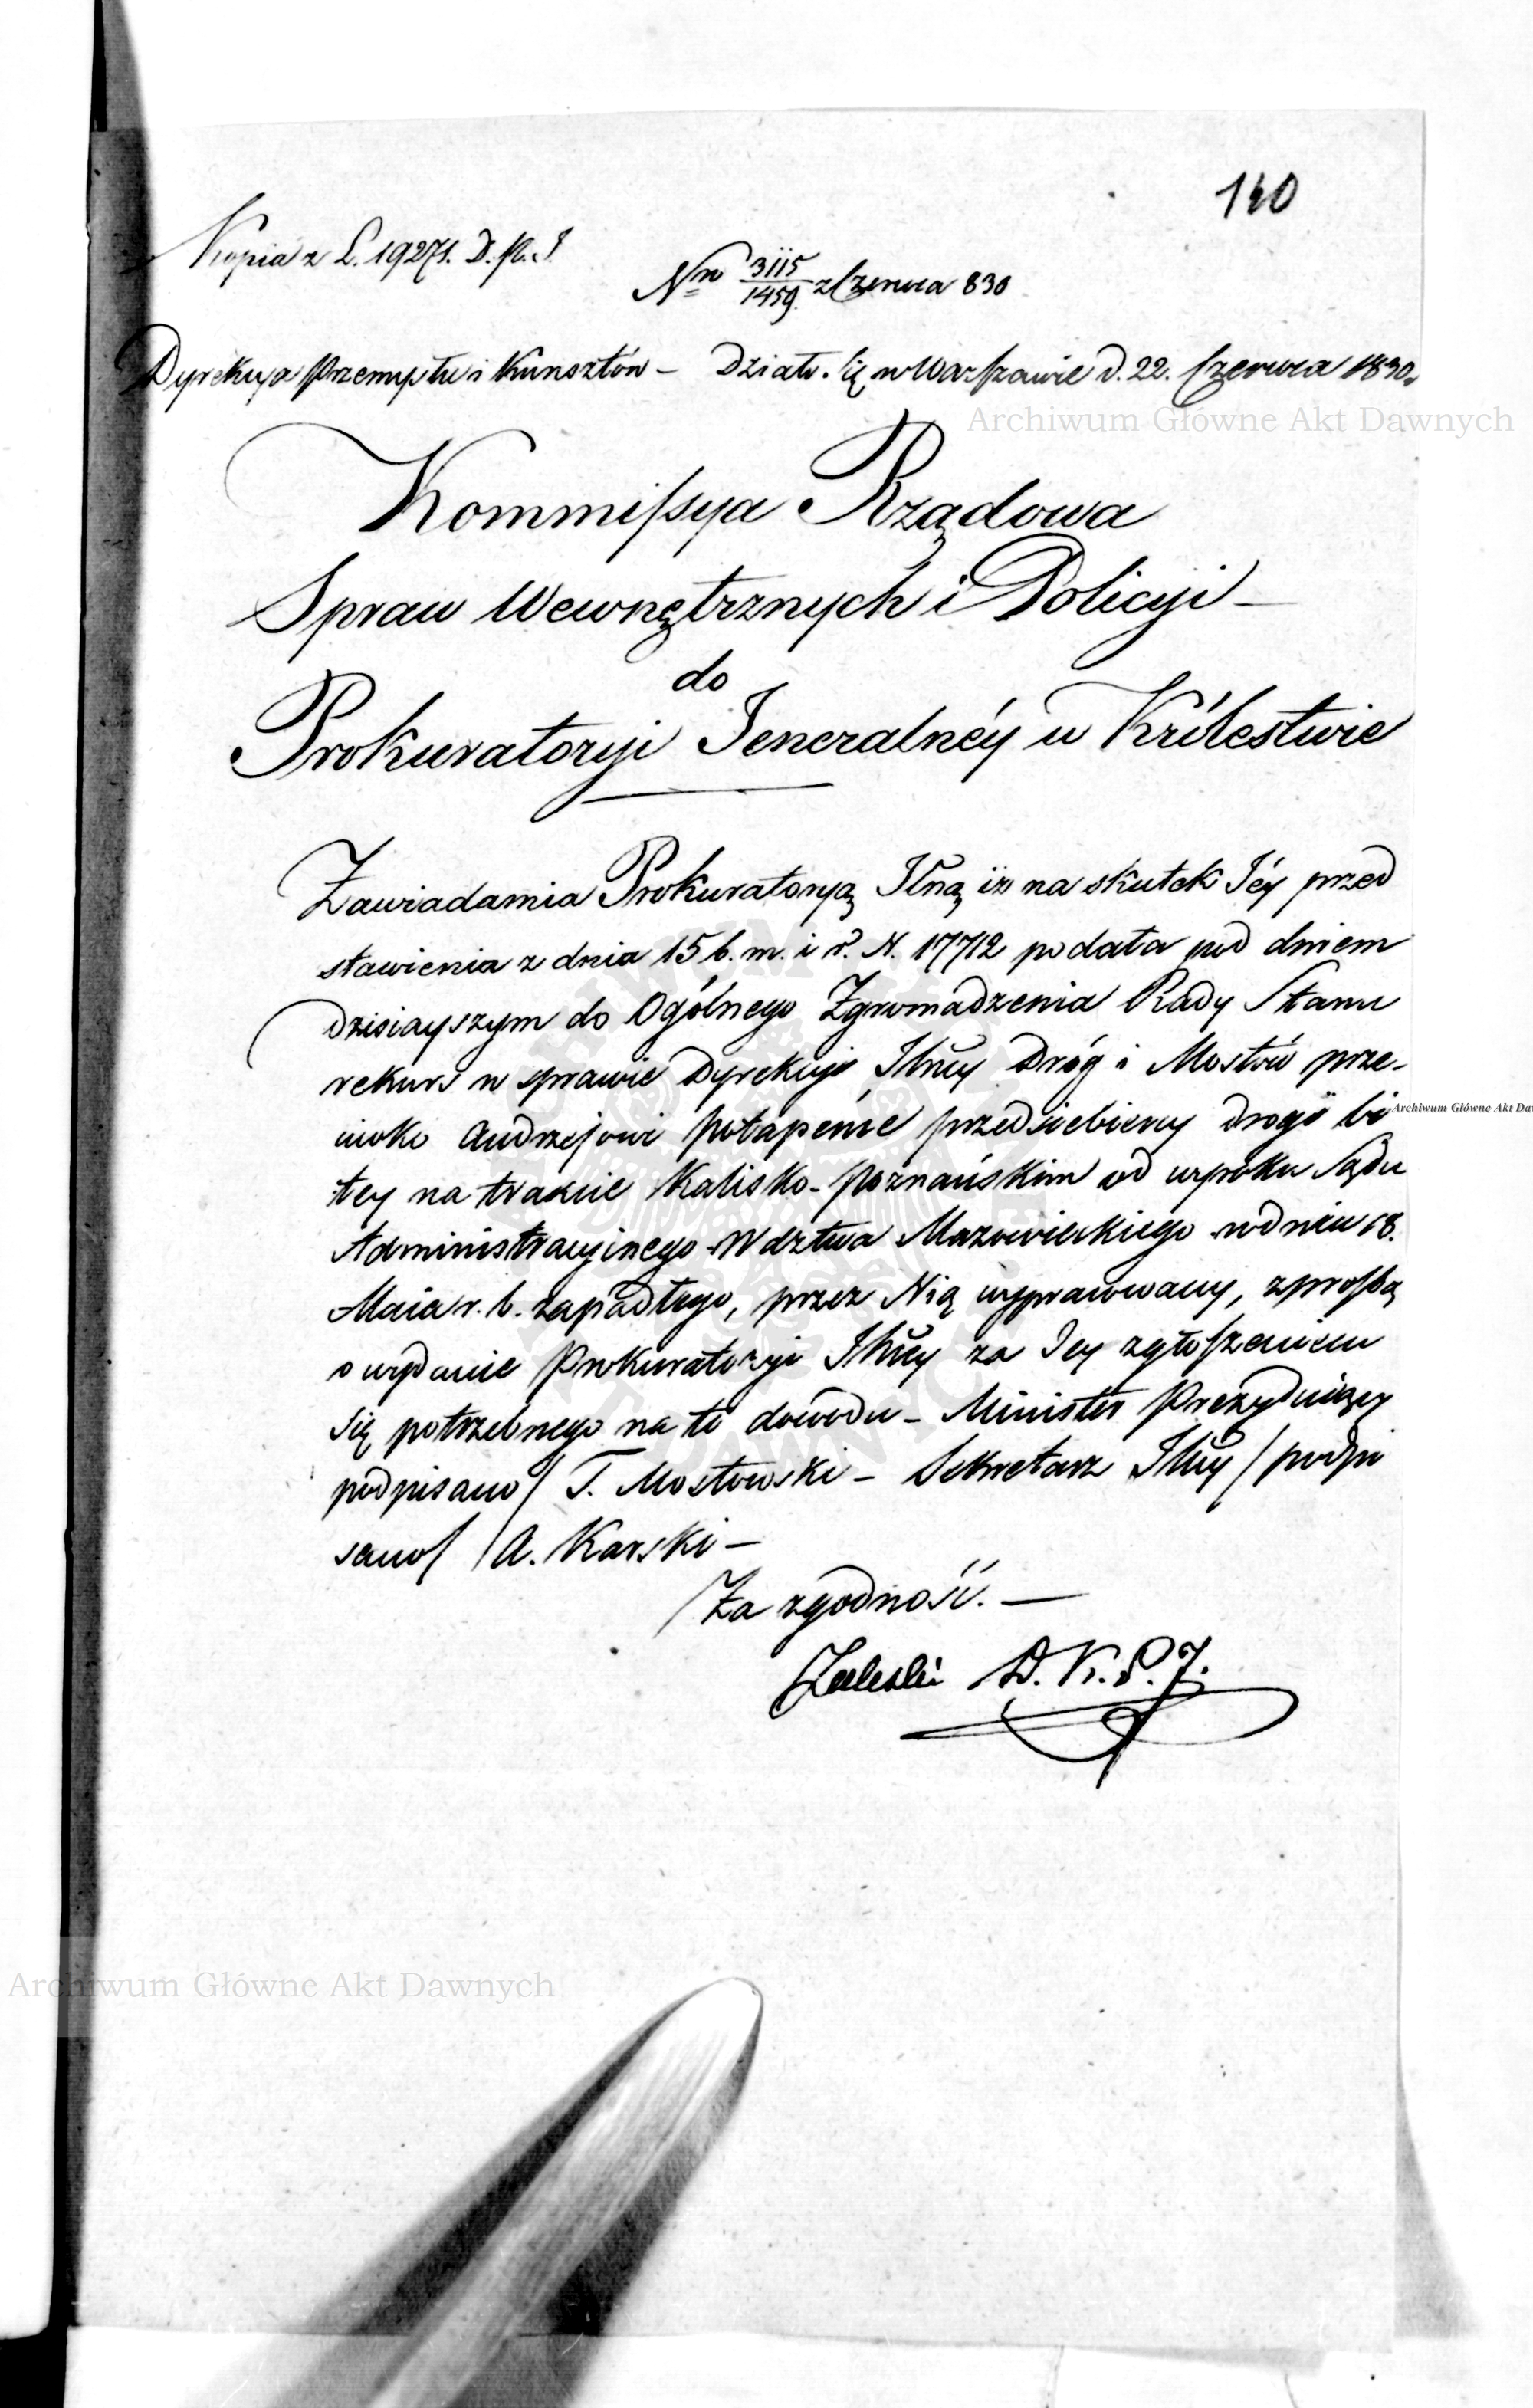 140
Kopia z L. 19271. D. P. J.
Nro 3115/1459. z Czerwca 830
Dyrekcya Przemysłu i Kunsztów – Działo się w Warszawie d. 22. Czerwca 1830.
Archiwum Główne Akt Dawnych
Kommissya Rządowa
Spraw Wewnętrznych i Policyi –
do
Prokuratoryi Jeneralnéy w Królestwie
Zawiadamia Prokuratoryą Jlną iż na skutek Jéy przed
stawienia z dnia 15 b. m. i r. N. 17712 podała pod dniem
dzisiayszym do Ogólnego Zgromadzenia Rady Stanu
rekurs w sprawie Dyrekcyi Jlney Dróg i Mostów prze-
ciwko Andrzejowi Potapenie przedsiebiercy drogi bi
Archiwum Główne Akt Da
tey na trakcie Kalisko-Poznańskim od wyroku Sądu
Administracyjnego Wdztwa Mazowieckiego w dniu 18.
Maia r. b. zapadłego, przez Nią wypracowany, z prośbą
o wydanie Prokuratoryi Jlney za Jey zgłoszeniem
się potrzebnego na to dowodu – Minister Prezyduiący
podpisano/ T. Mostowski – Sekretarz Jlny / podpi
sano/ A. Karski –
Za zgodność. –
Zaleski D. K. P. J.
Archiwum Główne Akt Dawnych